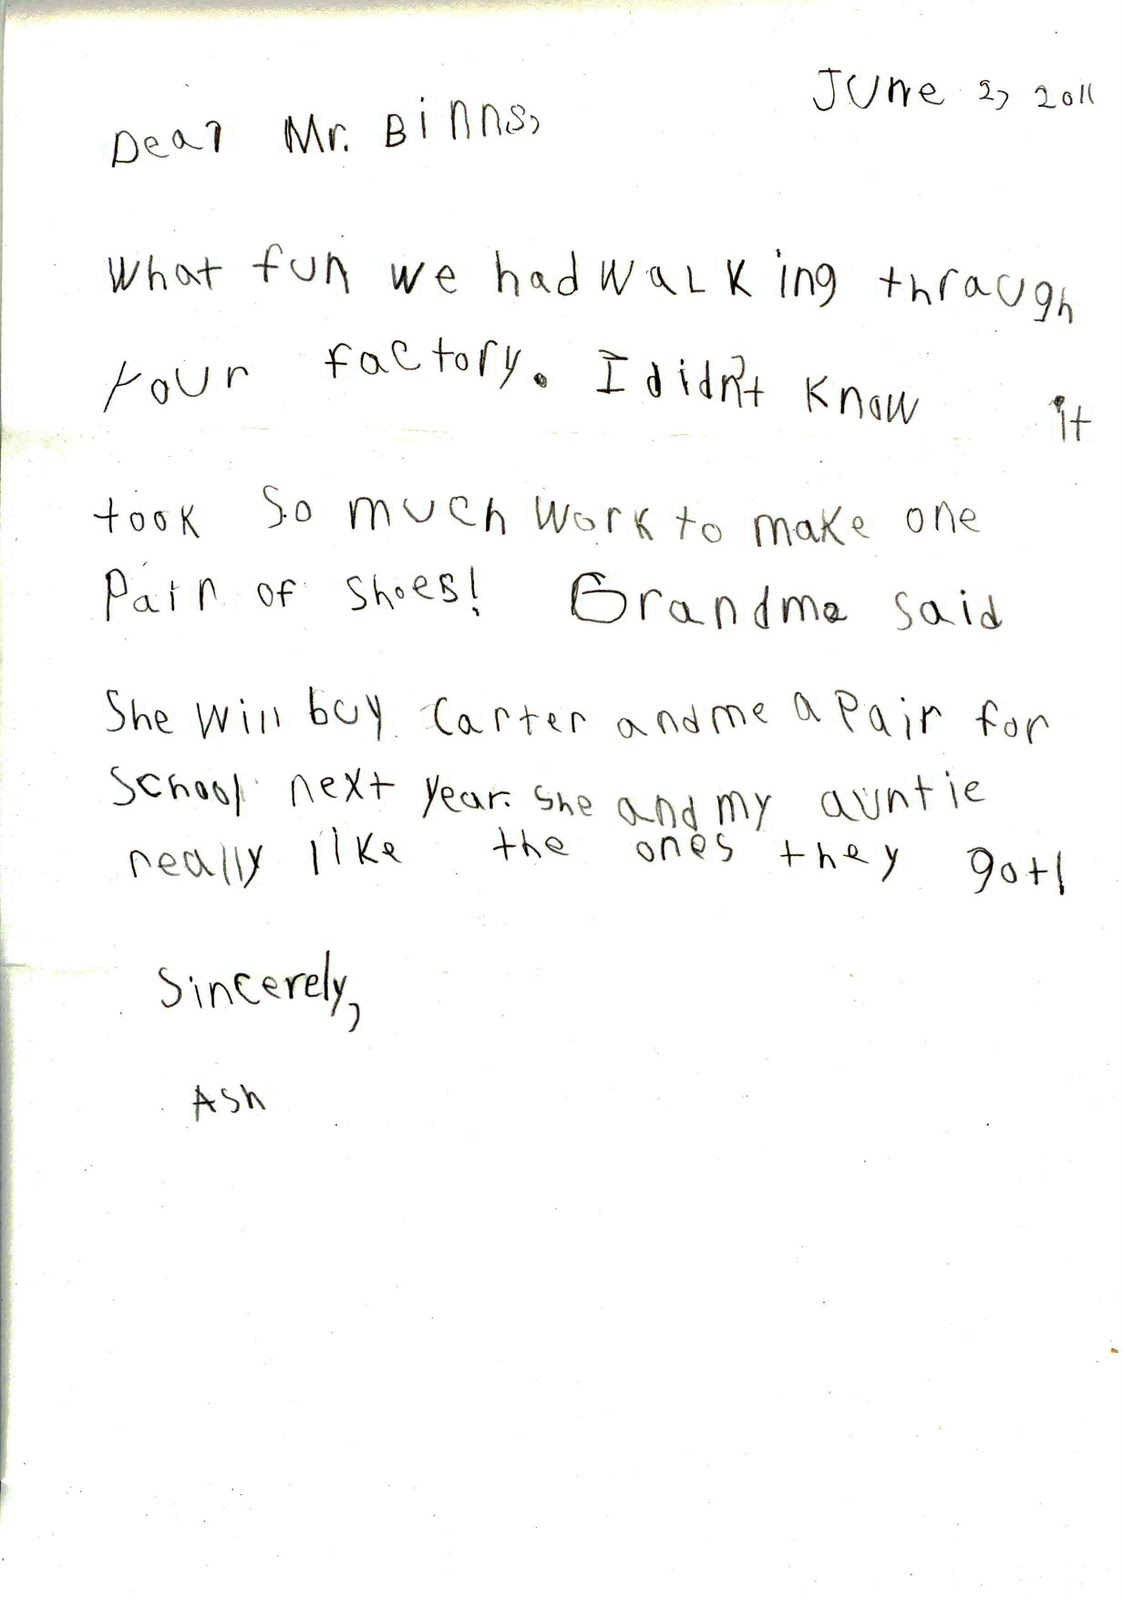 June 2, 2011
Dear Mr. Binns,
What fun we had walking through
your factory. I didn't know it
took so much work to make one
Pair of shoes! Grandma said
She will buy Carter and me a pair for
school next year. She and my auntie
really like the ones they got!
Sincerely,
Ash